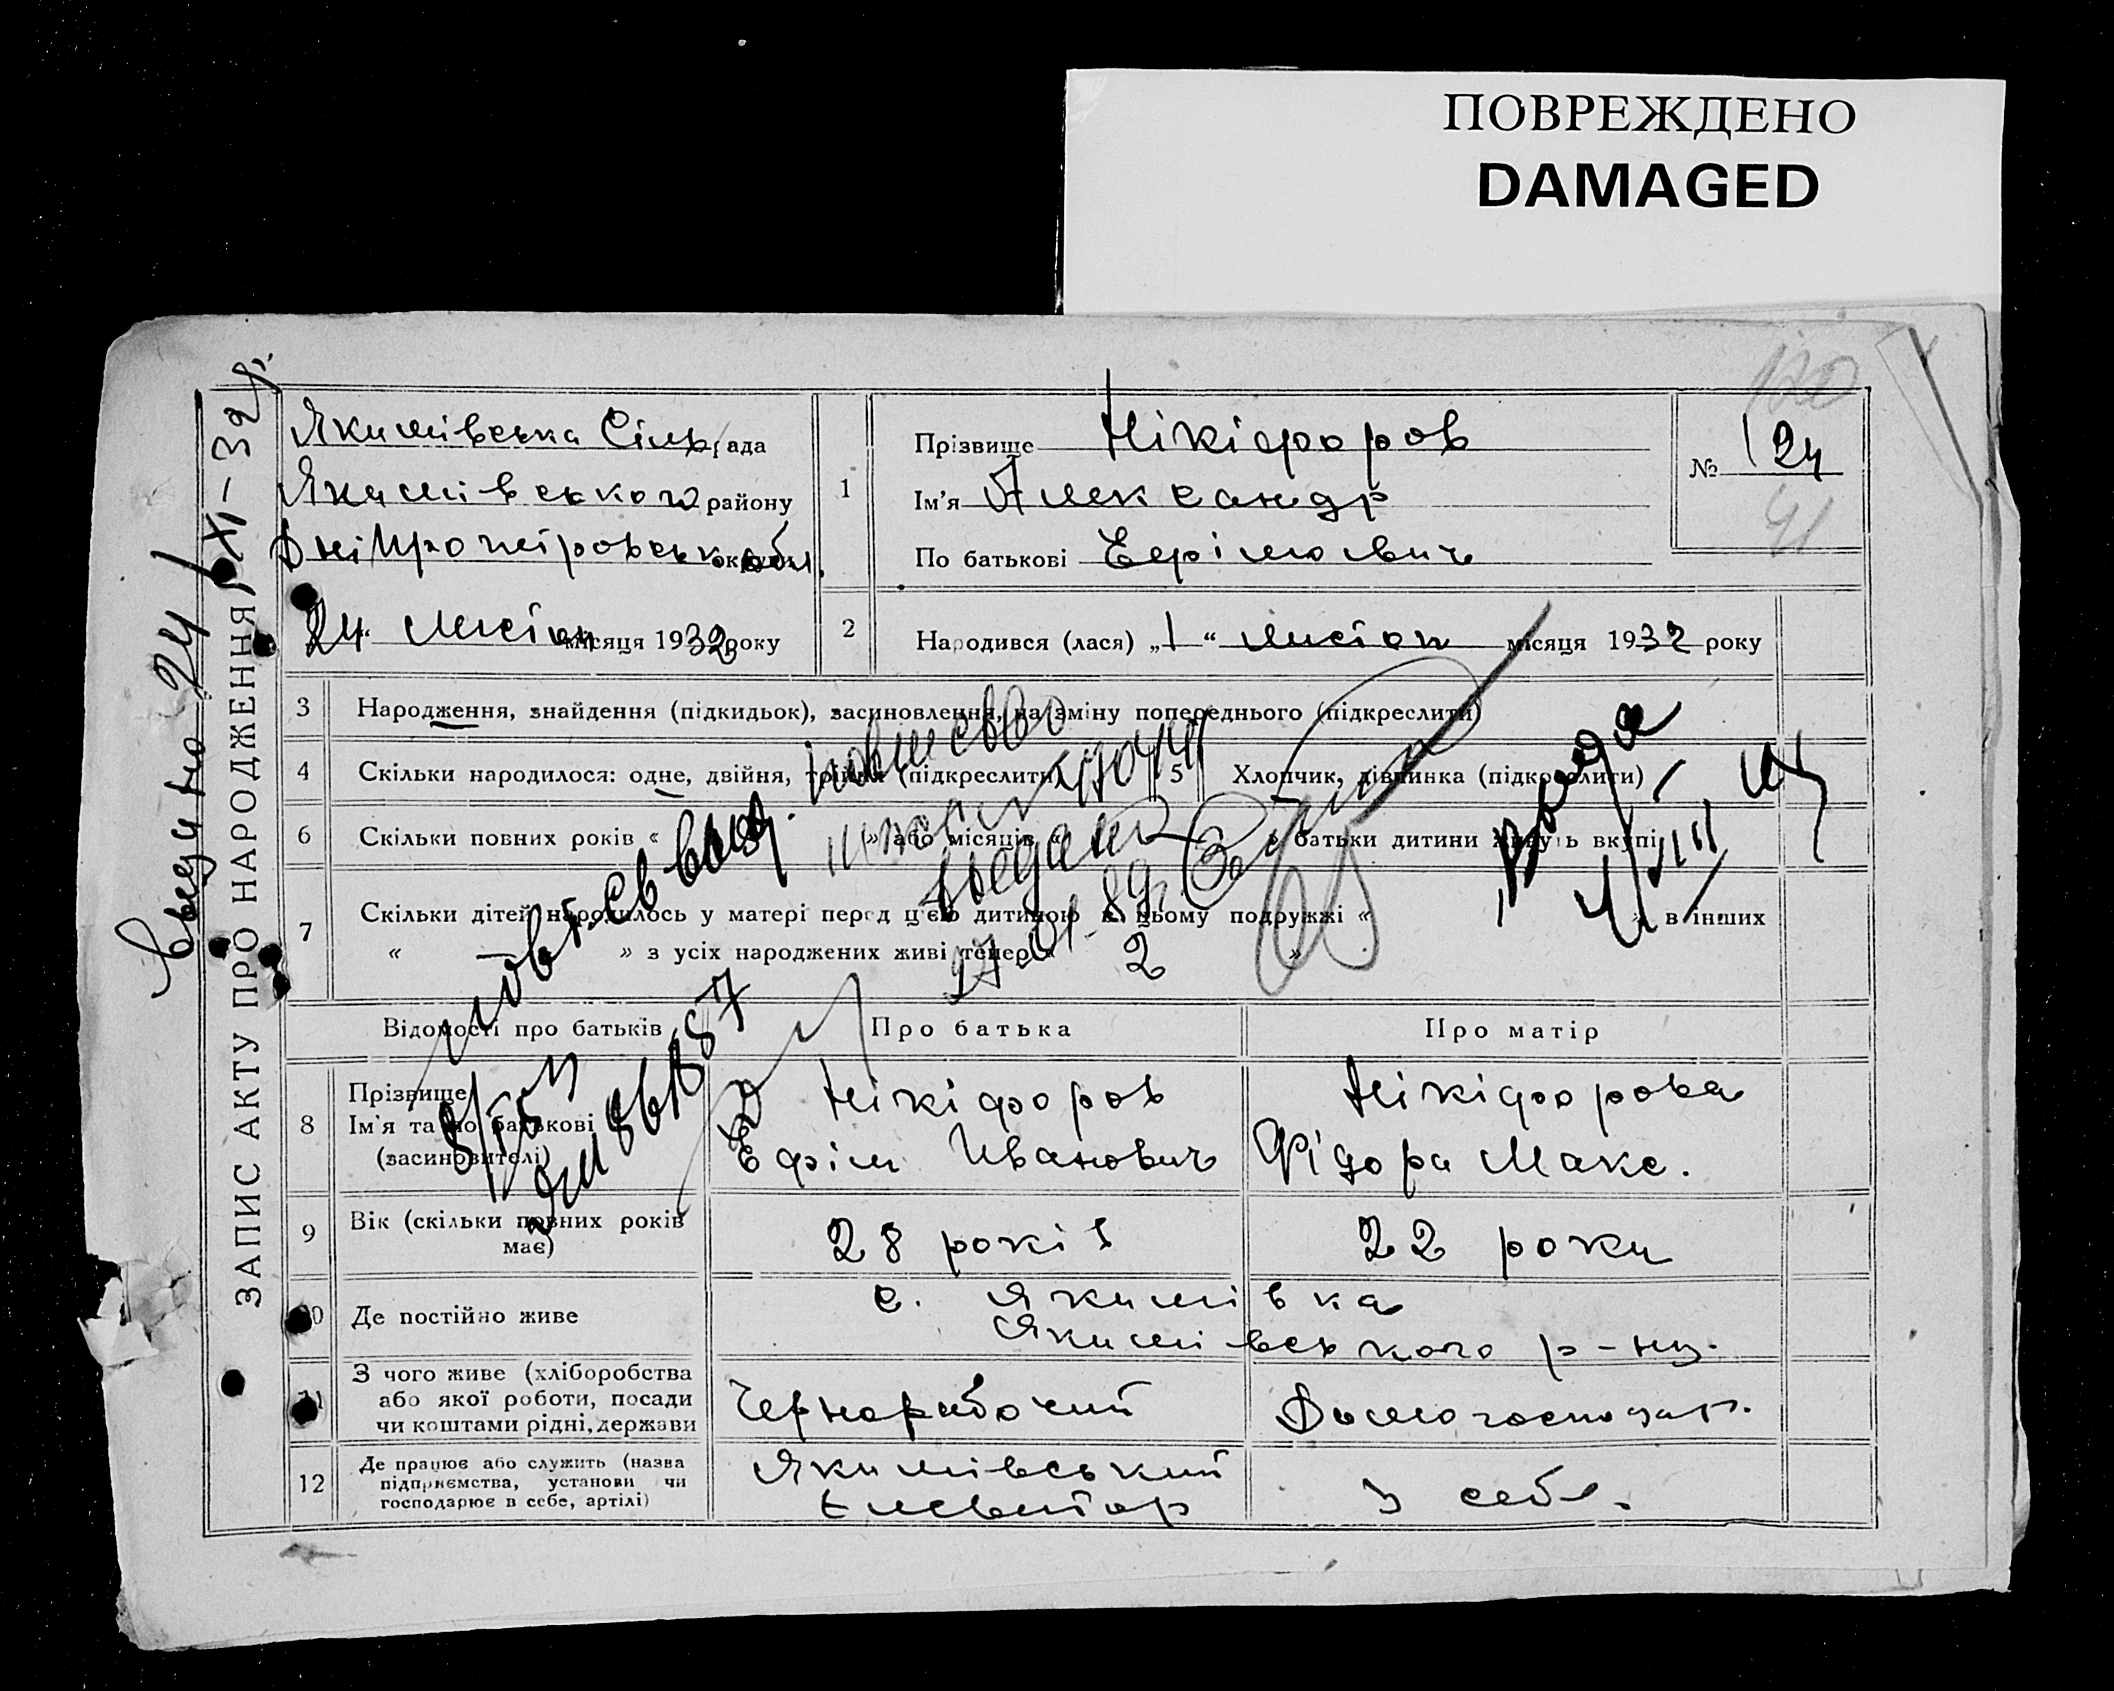 ПОВРЕЖДЕНО
DAMAGED
ЗАПИС АКТУ ПРО НАРОДЖЕННЯ
Якимівська Сільрада
Якимівського району
Дніпропетровськ обл.
„24“ листоп місяця 1932 року
1
Прізвище Нікіфоров
Ім'я Александр
По батькові Ефімович
№ 124
41
2
Народився (лася) „1“ листоп місяця 1932 року
3 Народження, знайдення (підкидьок), засиновлення, на зміну попереднього (підкреслити)
4 Скільки народилося: одне, двійня, трійня (підкреслити)
5 Хлопчик, дівчинка (підкреслити)
6 Скільки повних років « » або місяців « батьки дитини живуть вкупі
7 Скільки дітей народилось у матері перед цією дитиною в цьому подружжі « » в інших
« » з усіх народжених живі тепер « 2 »
Відомості про батьків
Про батька
Про матір
8
Прізвище
Ім'я та по батькові
(засиновителі)
Нікіфоров
Ефім Иванович
Нікіфорова
Фідора Макс.
9
Вік (скільки повних років
має)
28 років
22 роки
10 Де постійно живе
с. Якимівка
Якимівського р-ну.
11
З чого живе (хліборобства
або якої роботи, посади
чи коштами рідні, держави
Чернорабочий
Домогосподар.
12
Де працює або служить (назва
підприємства, установи чи
господарює в себе, артілі)
Якимівський
Елеватор
У себе.